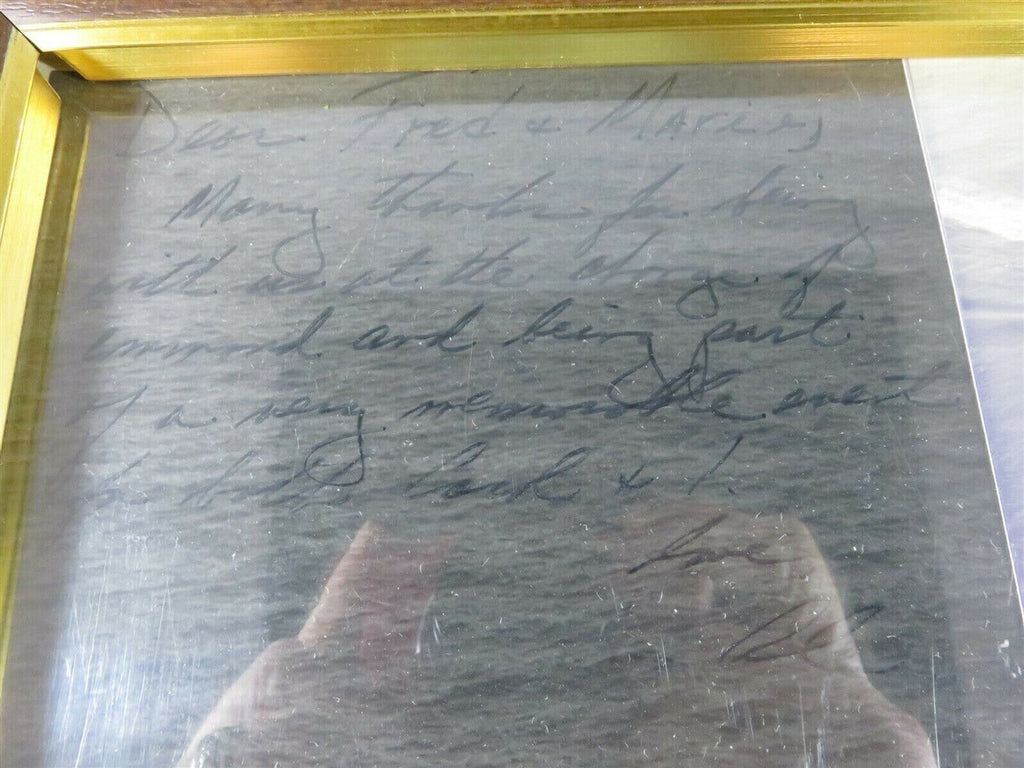 Dear Fred & Marie,
Many thanks for being
with us at the change of
command and being part
of a very memorable event
for both & I.
Love